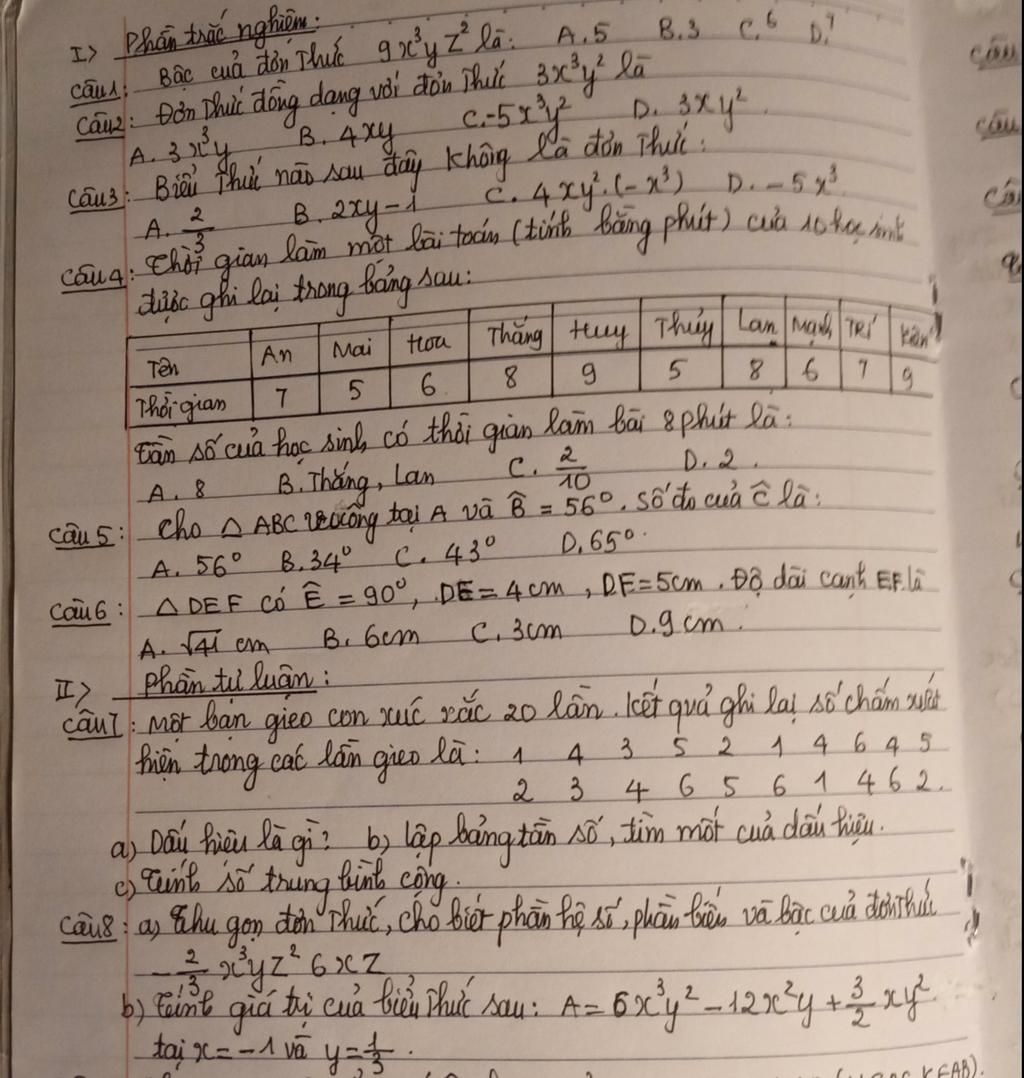 I> Phần trắc nghiệm:
Câu1: Bậc của đơn thức 9x³yz² là: A.5 B.3 C.6 D.7
Câu2: Đơn thức đồng dạng với đơn thức 3x³y² là
A. 3x³y B. 4xy C. -5x³y² D. 3xy²
Câu3: Biểu thức nào sau đây không là đơn thức:
A. 2/3 B. 2xy-1 C. 4xy².(-x³) D. -5x³
Câu4: Thời gian làm một bài toán (tính bằng phút) của 10 học sinh
được ghi lại trong bảng sau:
Tên An Mai Hoa Thắng Huy Thủy Lan Mạnh Trí
Thời gian 7 5 6 8 9 5 8 6 7 9
Tần số của học sinh có thời gian làm bài 8 phút là:
A. 8 B. Thắng, Lan C. 2/10 D. 2.
Câu5: Cho △ ABC vuông tại A và B̂ = 56°. Số đo của Ĉ là:
A. 56° B. 34° C. 43° D. 65°.
Câu6: △ DEF có Ê = 90°, DE = 4cm, DF = 5cm. Độ dài cạnh EF là
A. √41 cm B. 6cm C. 3cm D. 9cm.
II> Phần tự luận:
Câu7: Một bạn gieo con xúc xắc 20 lần. Kết quả ghi lại số chấm xuất
hiện trong các lần gieo là: 1 4 3 5 2 1 4 6 4 5
2 3 4 6 5 6 1 4 6 2.
a) Dấu hiệu là gì? b) Lập bảng tần số, tìm mốt của dấu hiệu.
c) Tính số trung bình cộng.
Câu8: a) Thu gọn đơn thức, cho biết phần hệ số, phần biến và bậc của đơn thức
-2/3 x³yz² 6xz
b) Tính giá trị của biểu thức sau: A = 6x³y² - 12x²y + 3/2 xy²
tại x = -1 và y = 1/3.